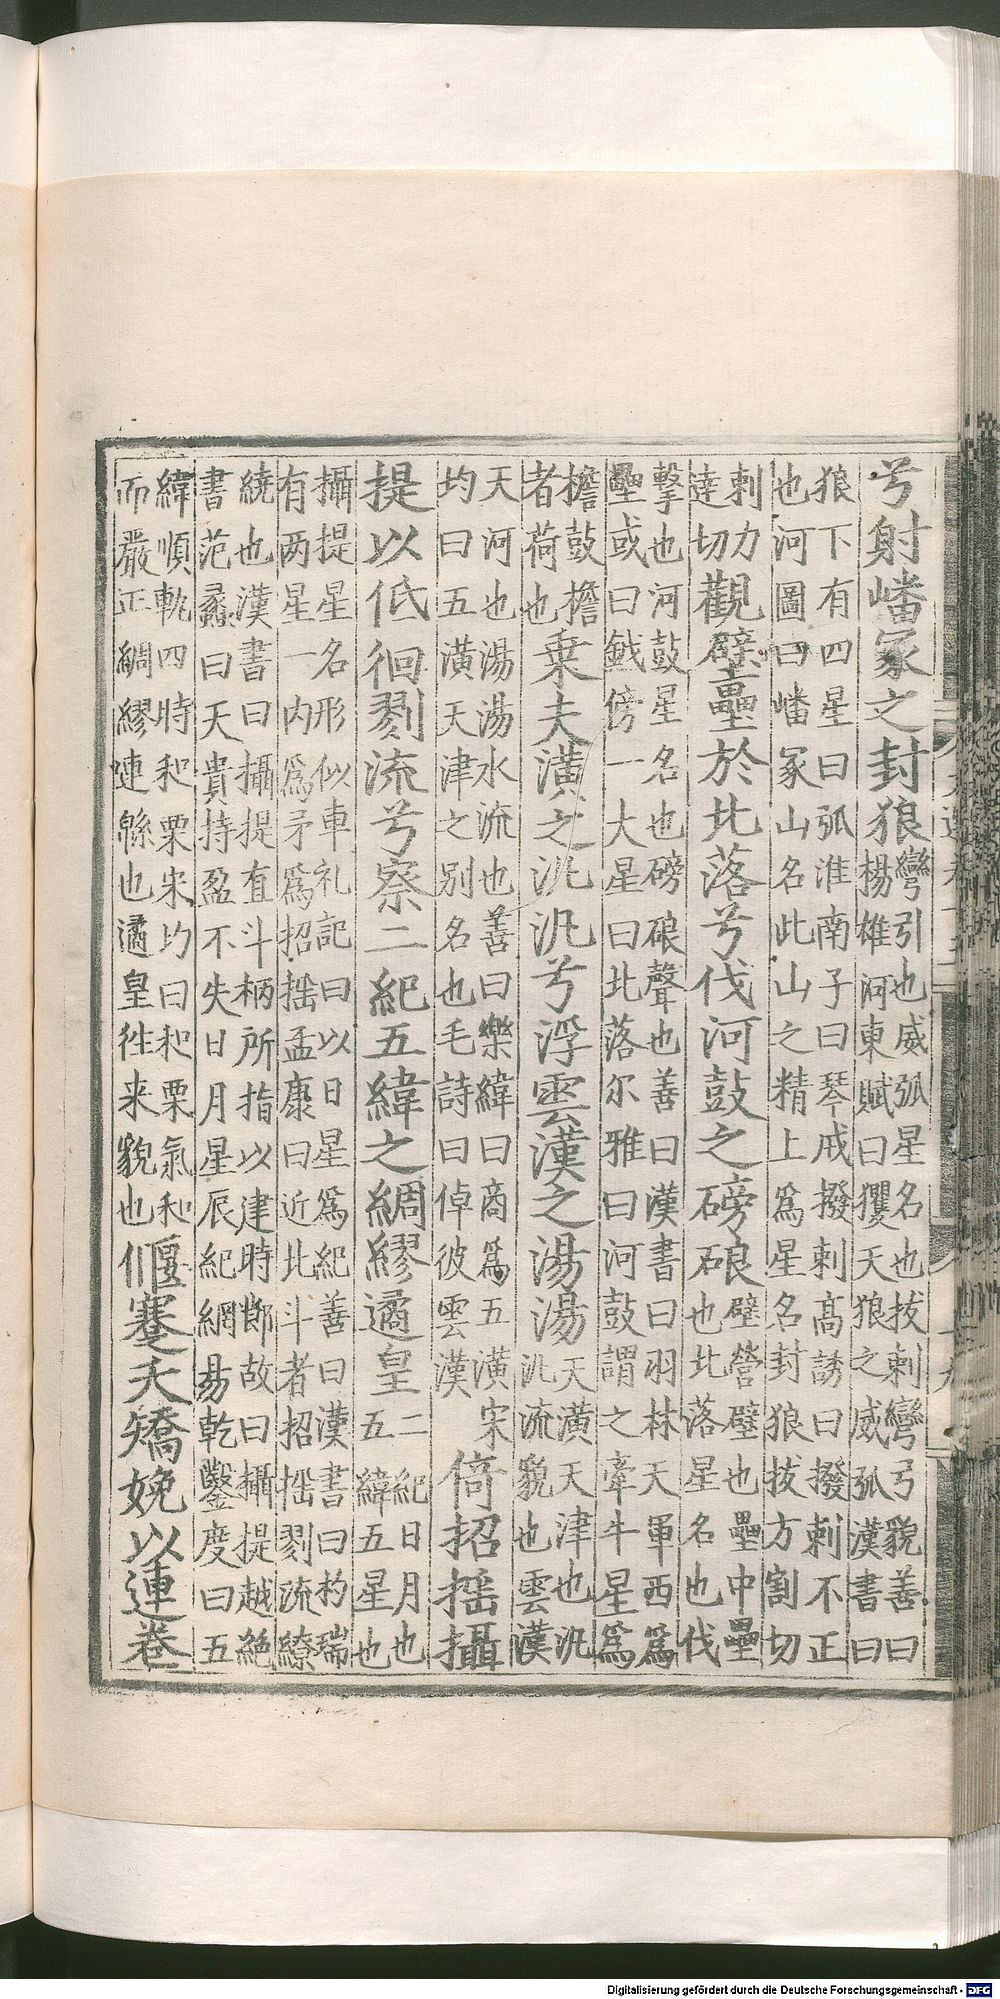 兮射嶓冢之封狼彎引也威弧星名也拔剌彎弓貌善曰
楊雄河東賦曰玃天狼之威弧漢書曰
狼下有四星曰弧淮南子曰琴戒撥剌高誘曰撥剌不正
也河圖曰嶓冢山名此山之精上爲星名封狼拔方割切
剌力
達切觀壁壘於北落兮伐河鼓之磅硠壁營壁也壘中壘
也北落星名也伐
擊也河鼓星名也磅硠聲也善曰漢書曰羽林天軍西爲
壘或曰鉞傍一大星曰北落尔雅曰河鼓謂之牽牛星爲
檐鼓檐
者荷也乗夫潢之汎汎兮浮雲漢之湯湯天潢天津也汎
汎流貌也雲漢
天河也湯湯水流也善曰樂緯曰商爲五潢宋
均曰五潢天津之别名也毛詩曰倬彼雲漢倚招揺攝
提以低徊剹流兮察二紀五緯之綢繆遹皇二紀日月也
五緯五星也
攝提星名形似車礼記曰以日星爲紀善曰漢書曰杓瑞
有两星一内爲矛爲招揺孟康曰近北斗者招揺剹流繚
繞也漢書曰攝提直斗柄所指以建時節故曰攝提越絶
書范蠡曰天貴持盈不失日月星辰紀綱易乾鑿度曰五
緯順軌四時和栗宋均曰和栗氣和
而嚴正綢繆連緜也遹皇徃来貌也偃蹇夭矯娩以連卷
Digitalisierung gefördert durch die Deutsche Forschungsgemeinschaft - DFG